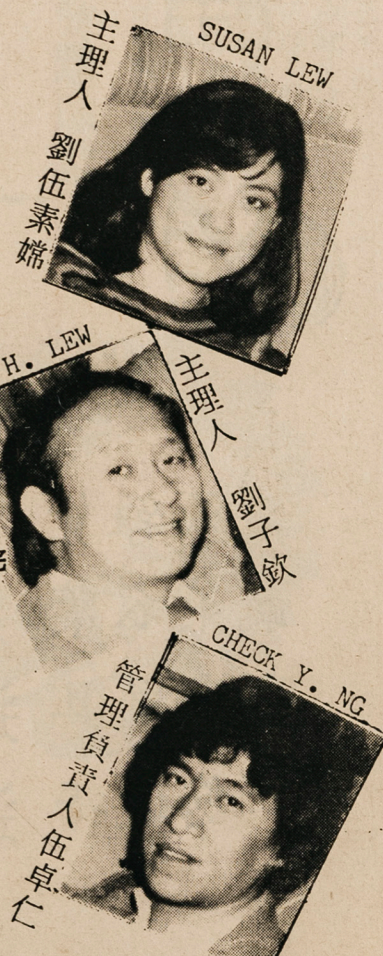 SUSAN LEW
主理人 劉伍素嫦
H. LEW
主理人 劉子欽
CHECK Y. NG
管理負責人伍卓仁